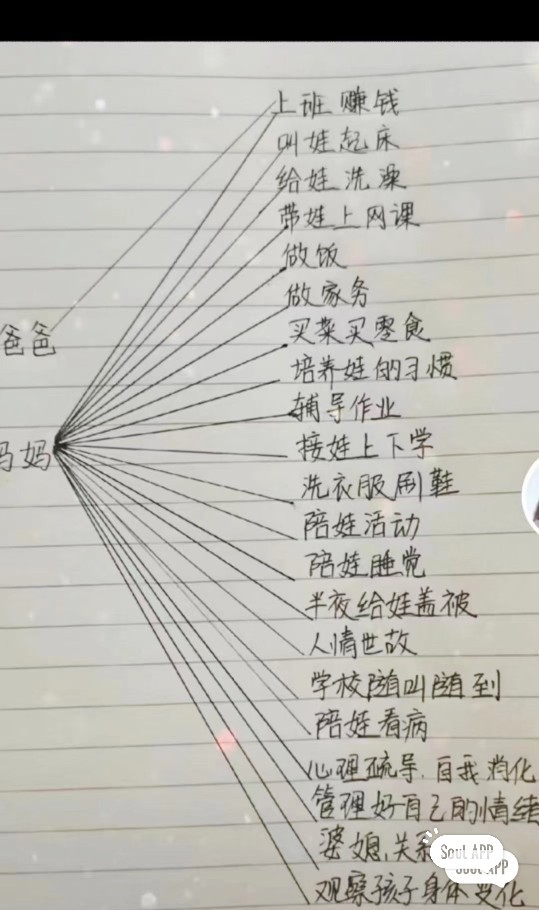 上班赚钱
叫娃起床
给娃洗澡
带娃上网课
做饭
做家务
买菜买零食
爸爸
培养娃的习惯
辅导作业
接娃上下学
妈妈
洗衣服刷鞋
陪娃活动
陪娃睡觉
半夜给娃盖被
人情世故
学校随叫随到
陪娃看病
心理疏导.自我消化
管理好自己的情绪
婆媳.关系
Soul APP
Soul APP
观察孩子身体变化